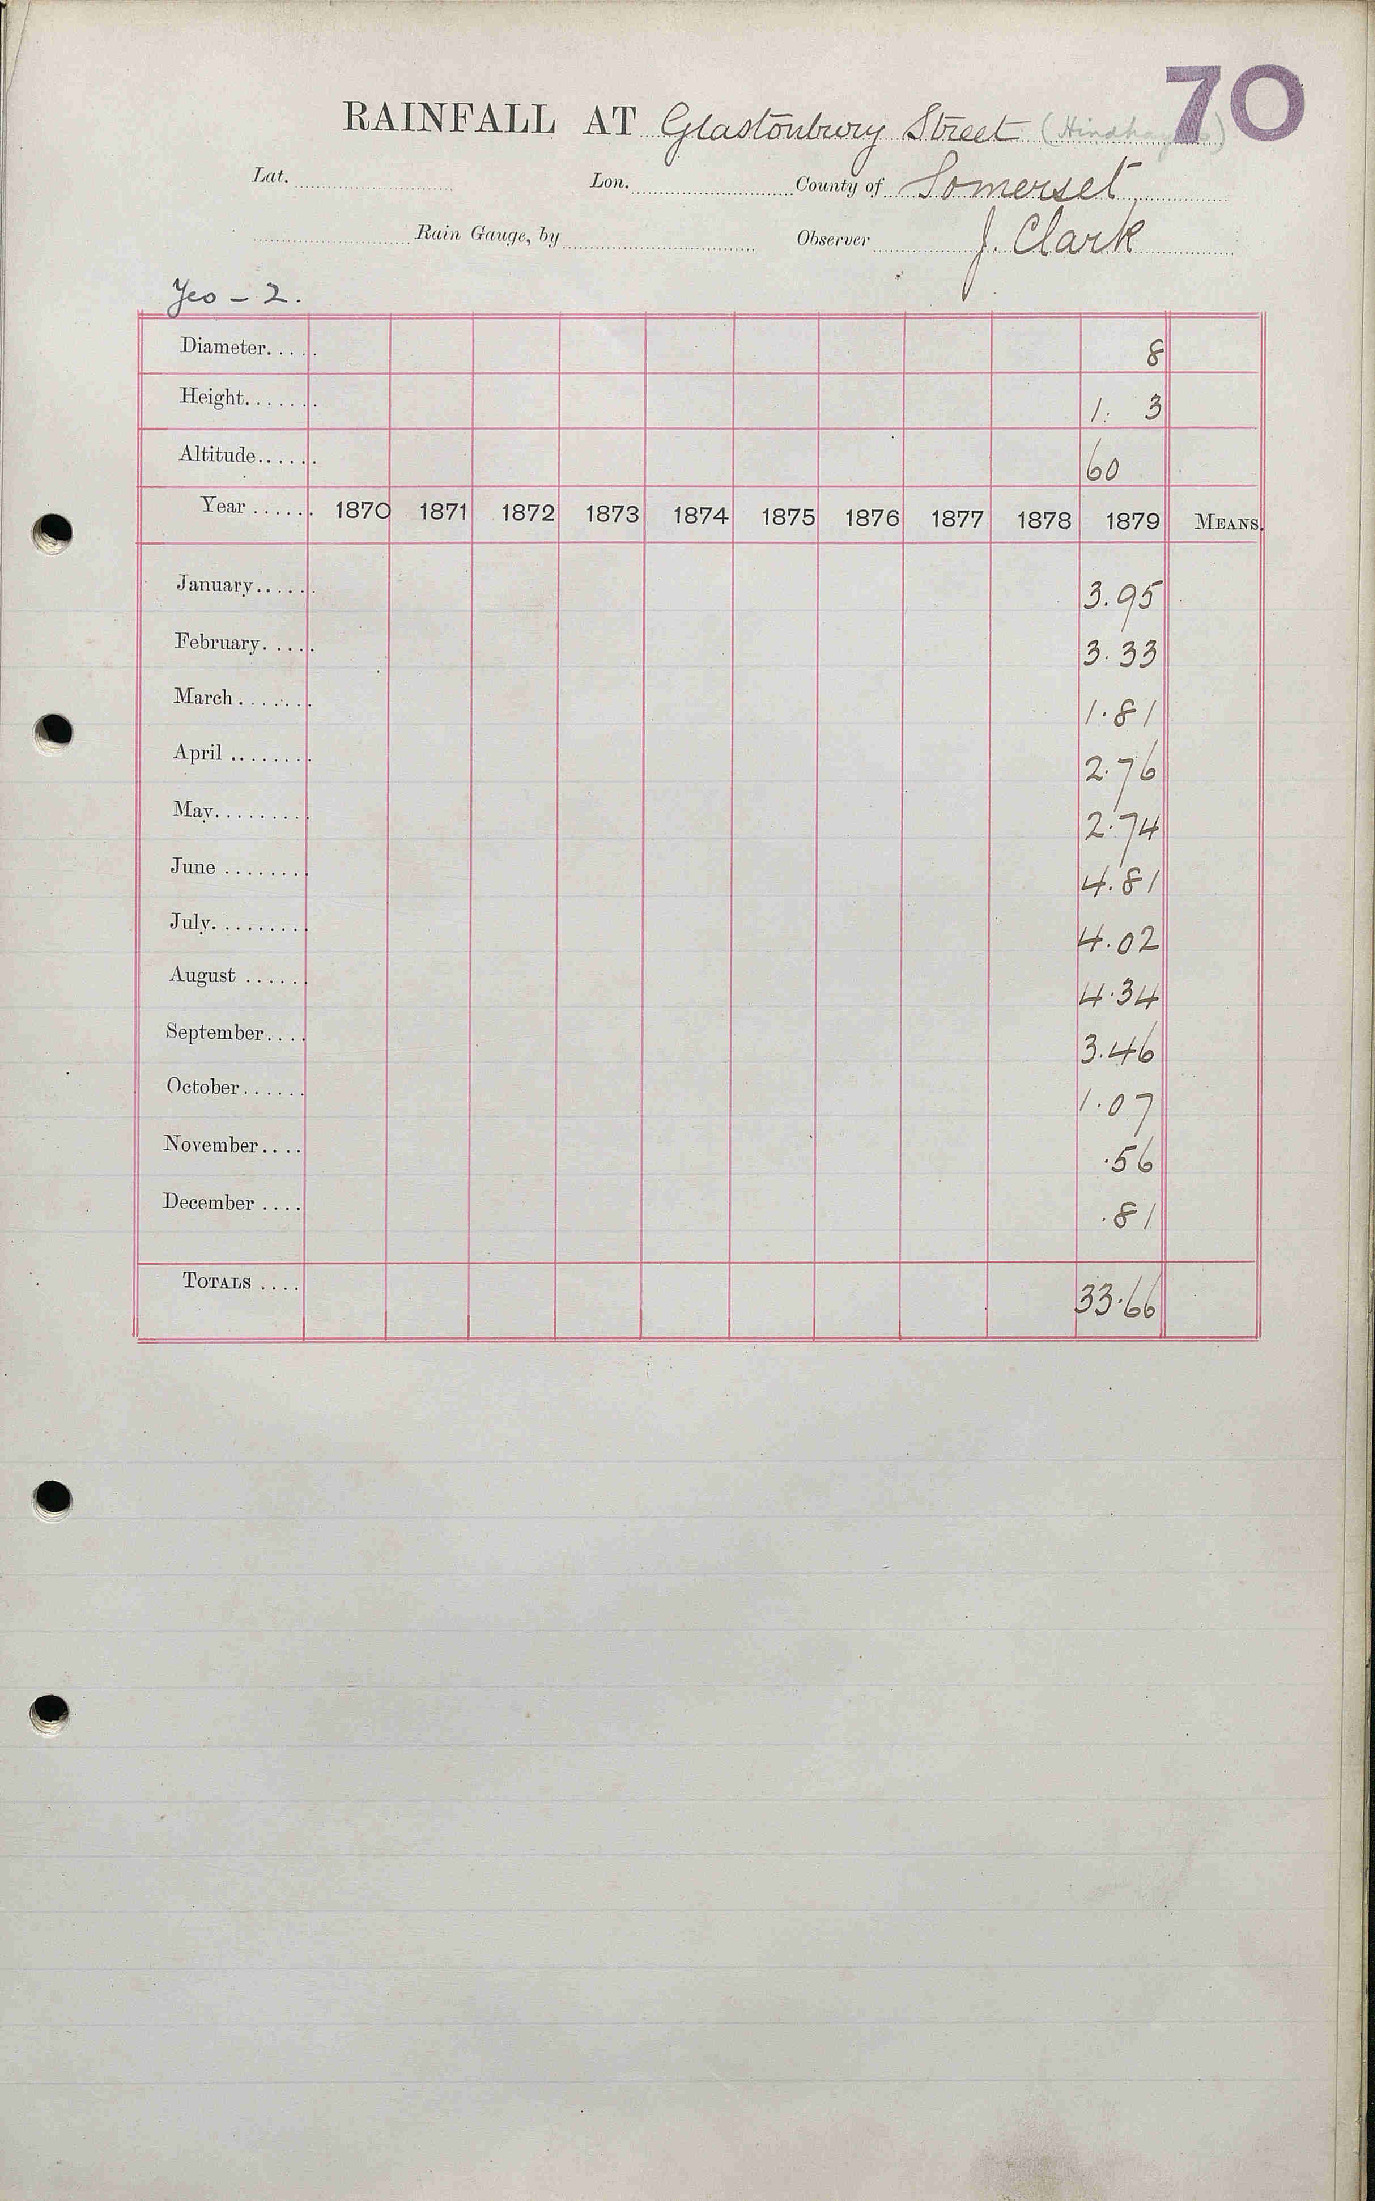 70
RAINFALL AT Glastonbury Street
Lat. Lon. County of Somerset
Rain Gauge, by Observer J. Clark
Yeo - 2.
Diameter..... 8
Height....... 1. 3
Altitude...... 60
Year ...... 1870 1871 1872 1873 1874 1875 1876 1877 1878 1879 MEANS.
January...... 3.95
February..... 3.33
March ....... 1.81
April ........ 2.76
May......... 2.74
June ........ 4.81
July......... 4.02
August ...... 4.34
September.... 3.46
October...... 1.07
November.... .56
December .... .81
TOTALS .... 33.66